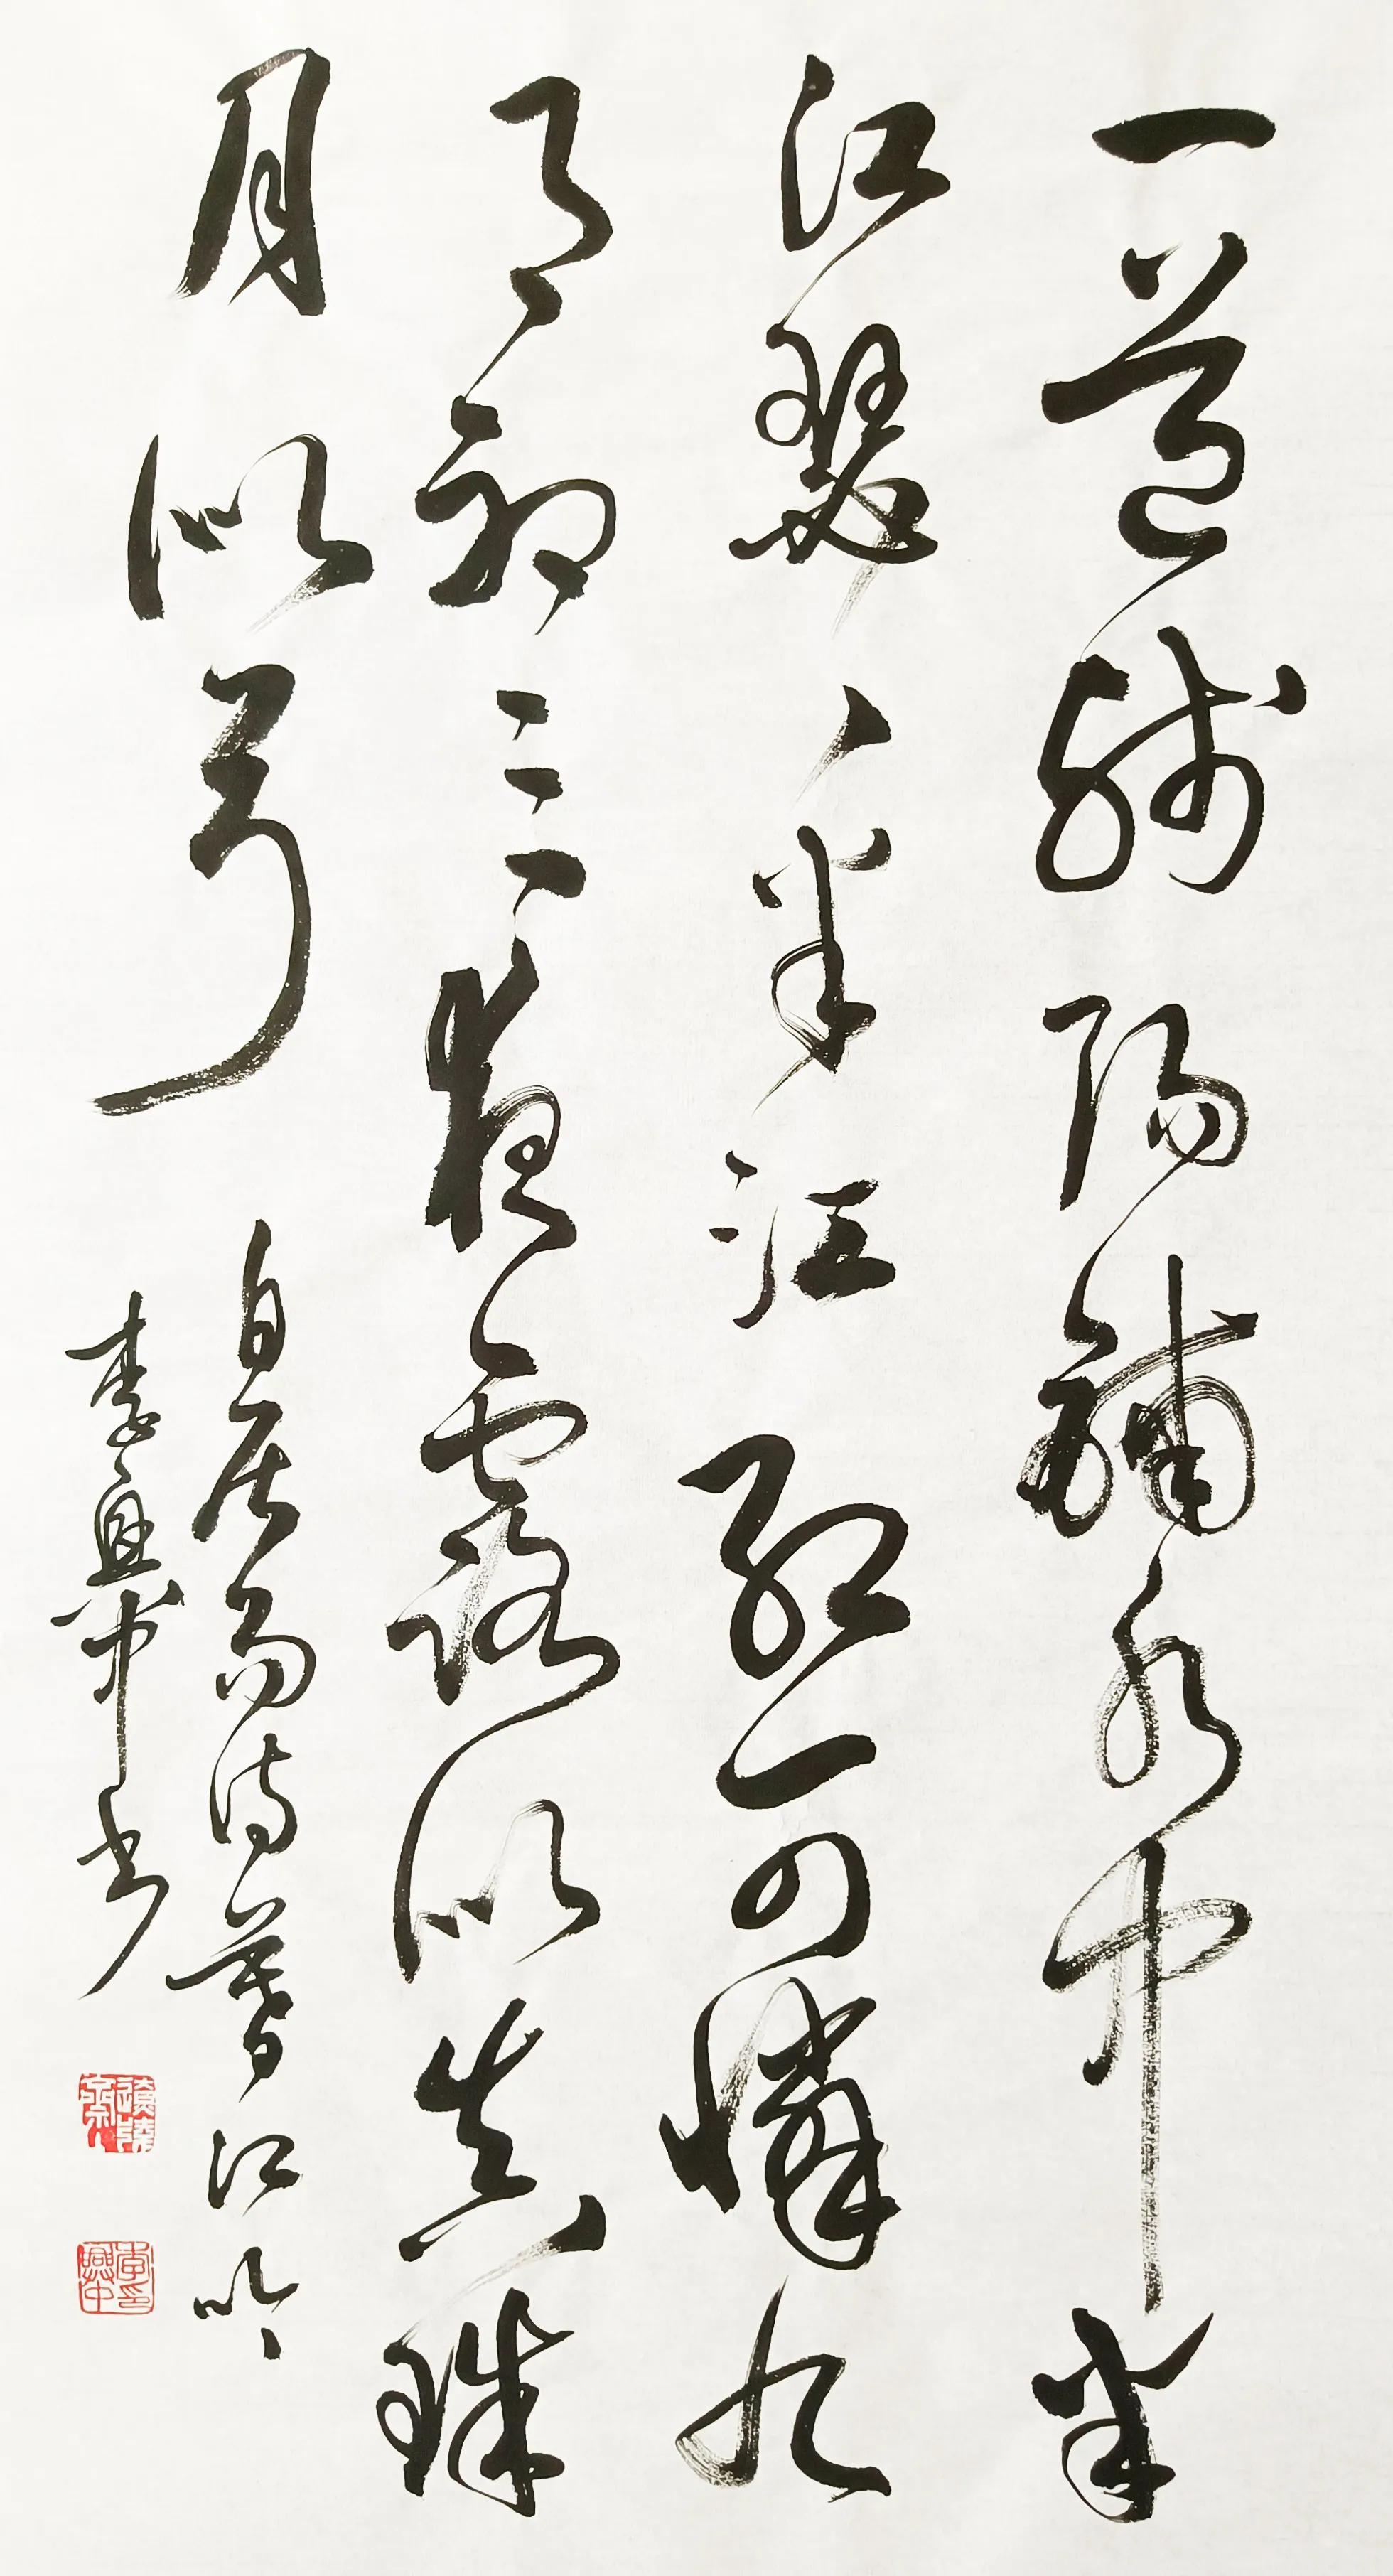 一道殘陽鋪水中半
江瑟〻半江紅可憐九
月初三夜露似真珠
月似弓
白居易詩暮江吟
李興中書
李印興中